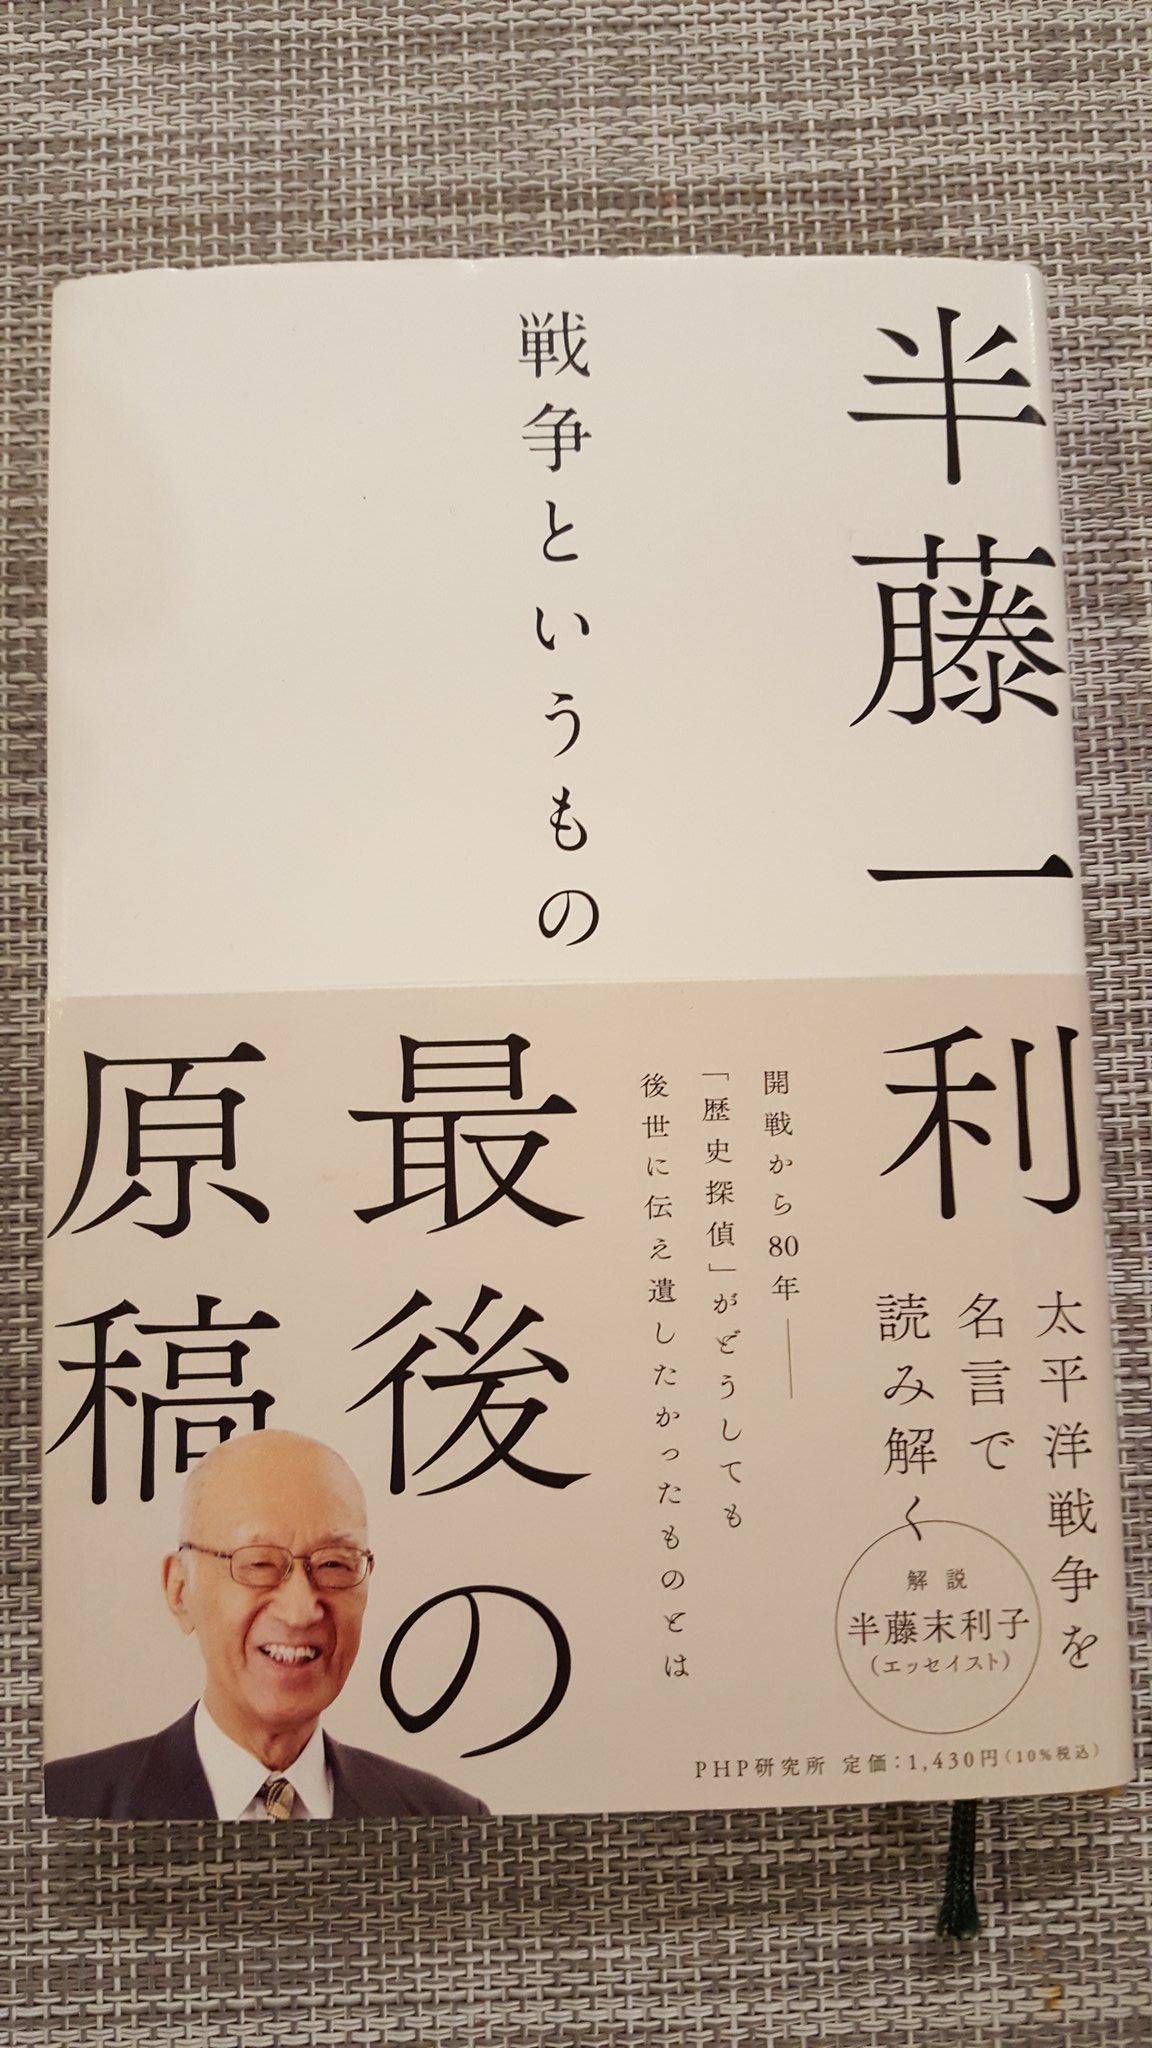 半藤一利
戦争というもの
太平洋戦争を
名言で
読み解く
解説
半藤末利子
(エッセイスト)
開戦から80年──
「歴史探偵」がどうしても
後世に伝え遺したかったものとは
最後の
原稿
PHP研究所 定価:1,430円(10%税込)